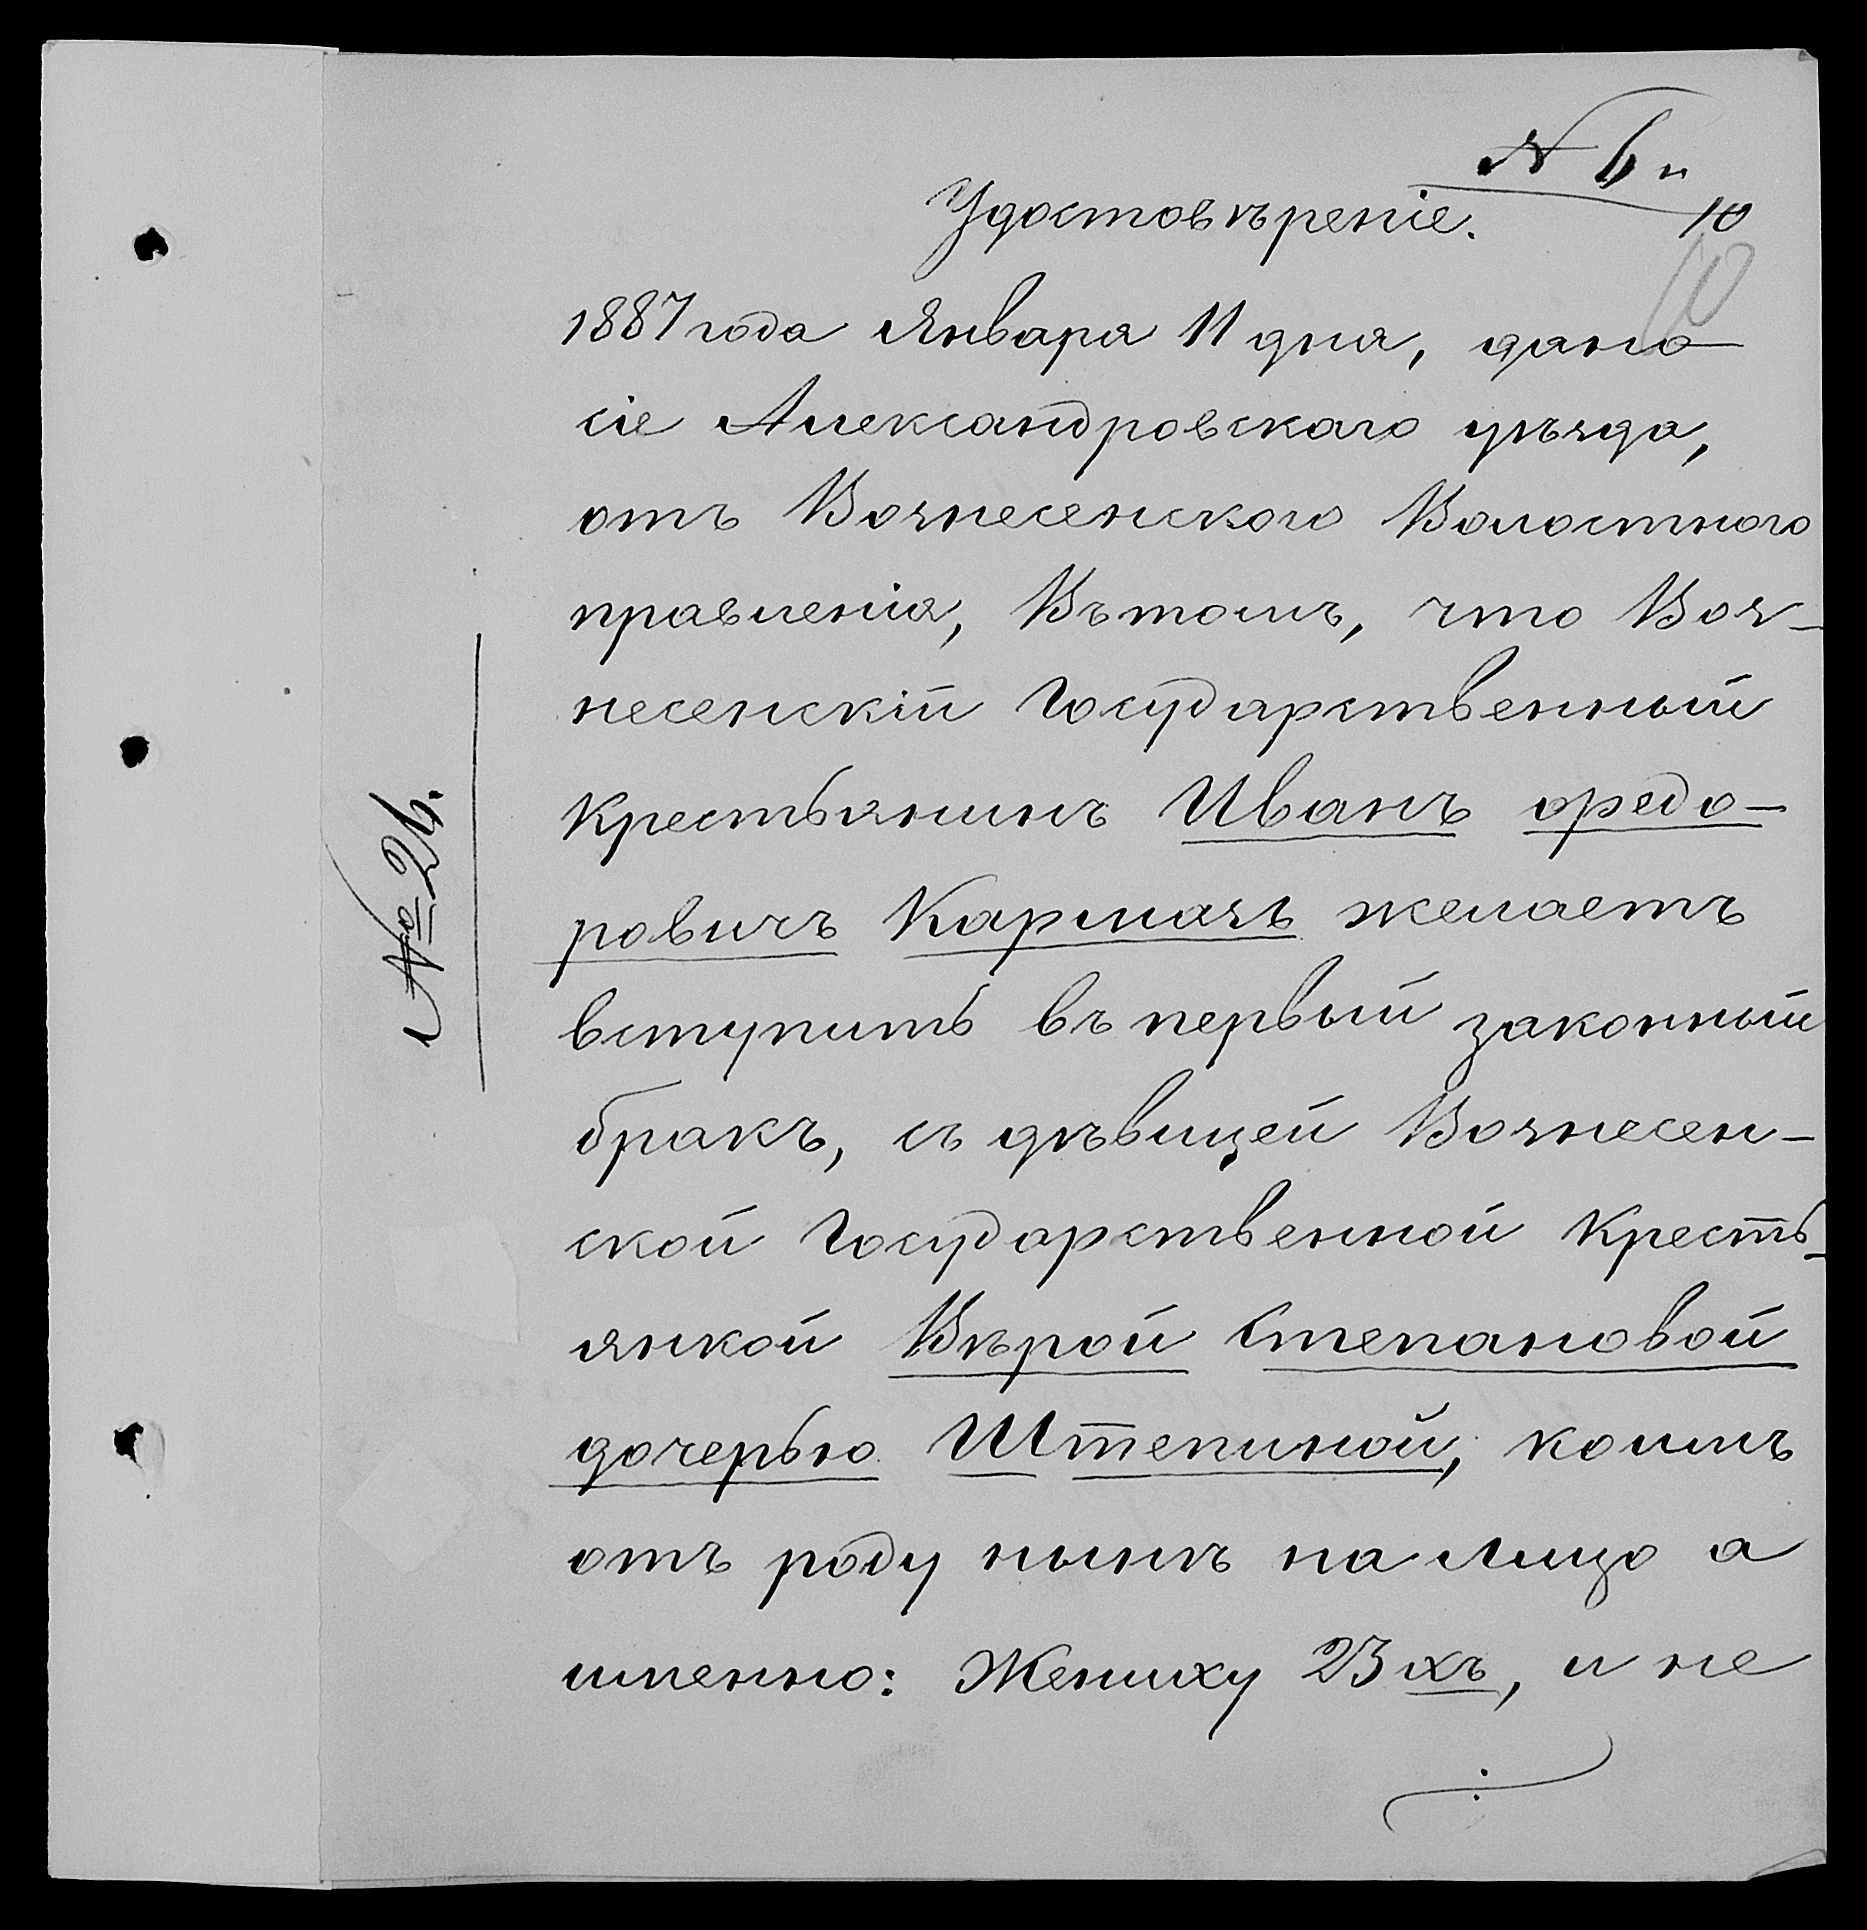 № 6 й
Удостовѣреніе.
10
10
1887 года Января 11 дня, дано
сіе Александровскаго уѣзда,
отъ Вознесенского Волостного
правленія, Въ томъ, что Воз-
несенскій Государственный
Крестьянинъ Иванъ Ѳедо-
ровичъ Кармазъ желаетъ
вступить въ первый законный
бракъ, съ дѣвицей Вознесен-
ской Государственной Кресть-
янкой Вѣрой Степановой
дочерью Штепиной, коимъ
отъ роду нынѣ на Лицо а
именно: Жениху 23 хъ, и не
№ 24.